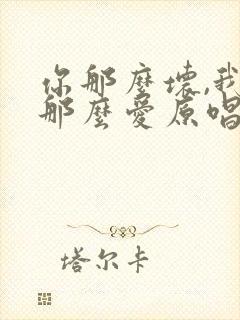 你那麼壞,我
那麼愛原唱
塔尔卡